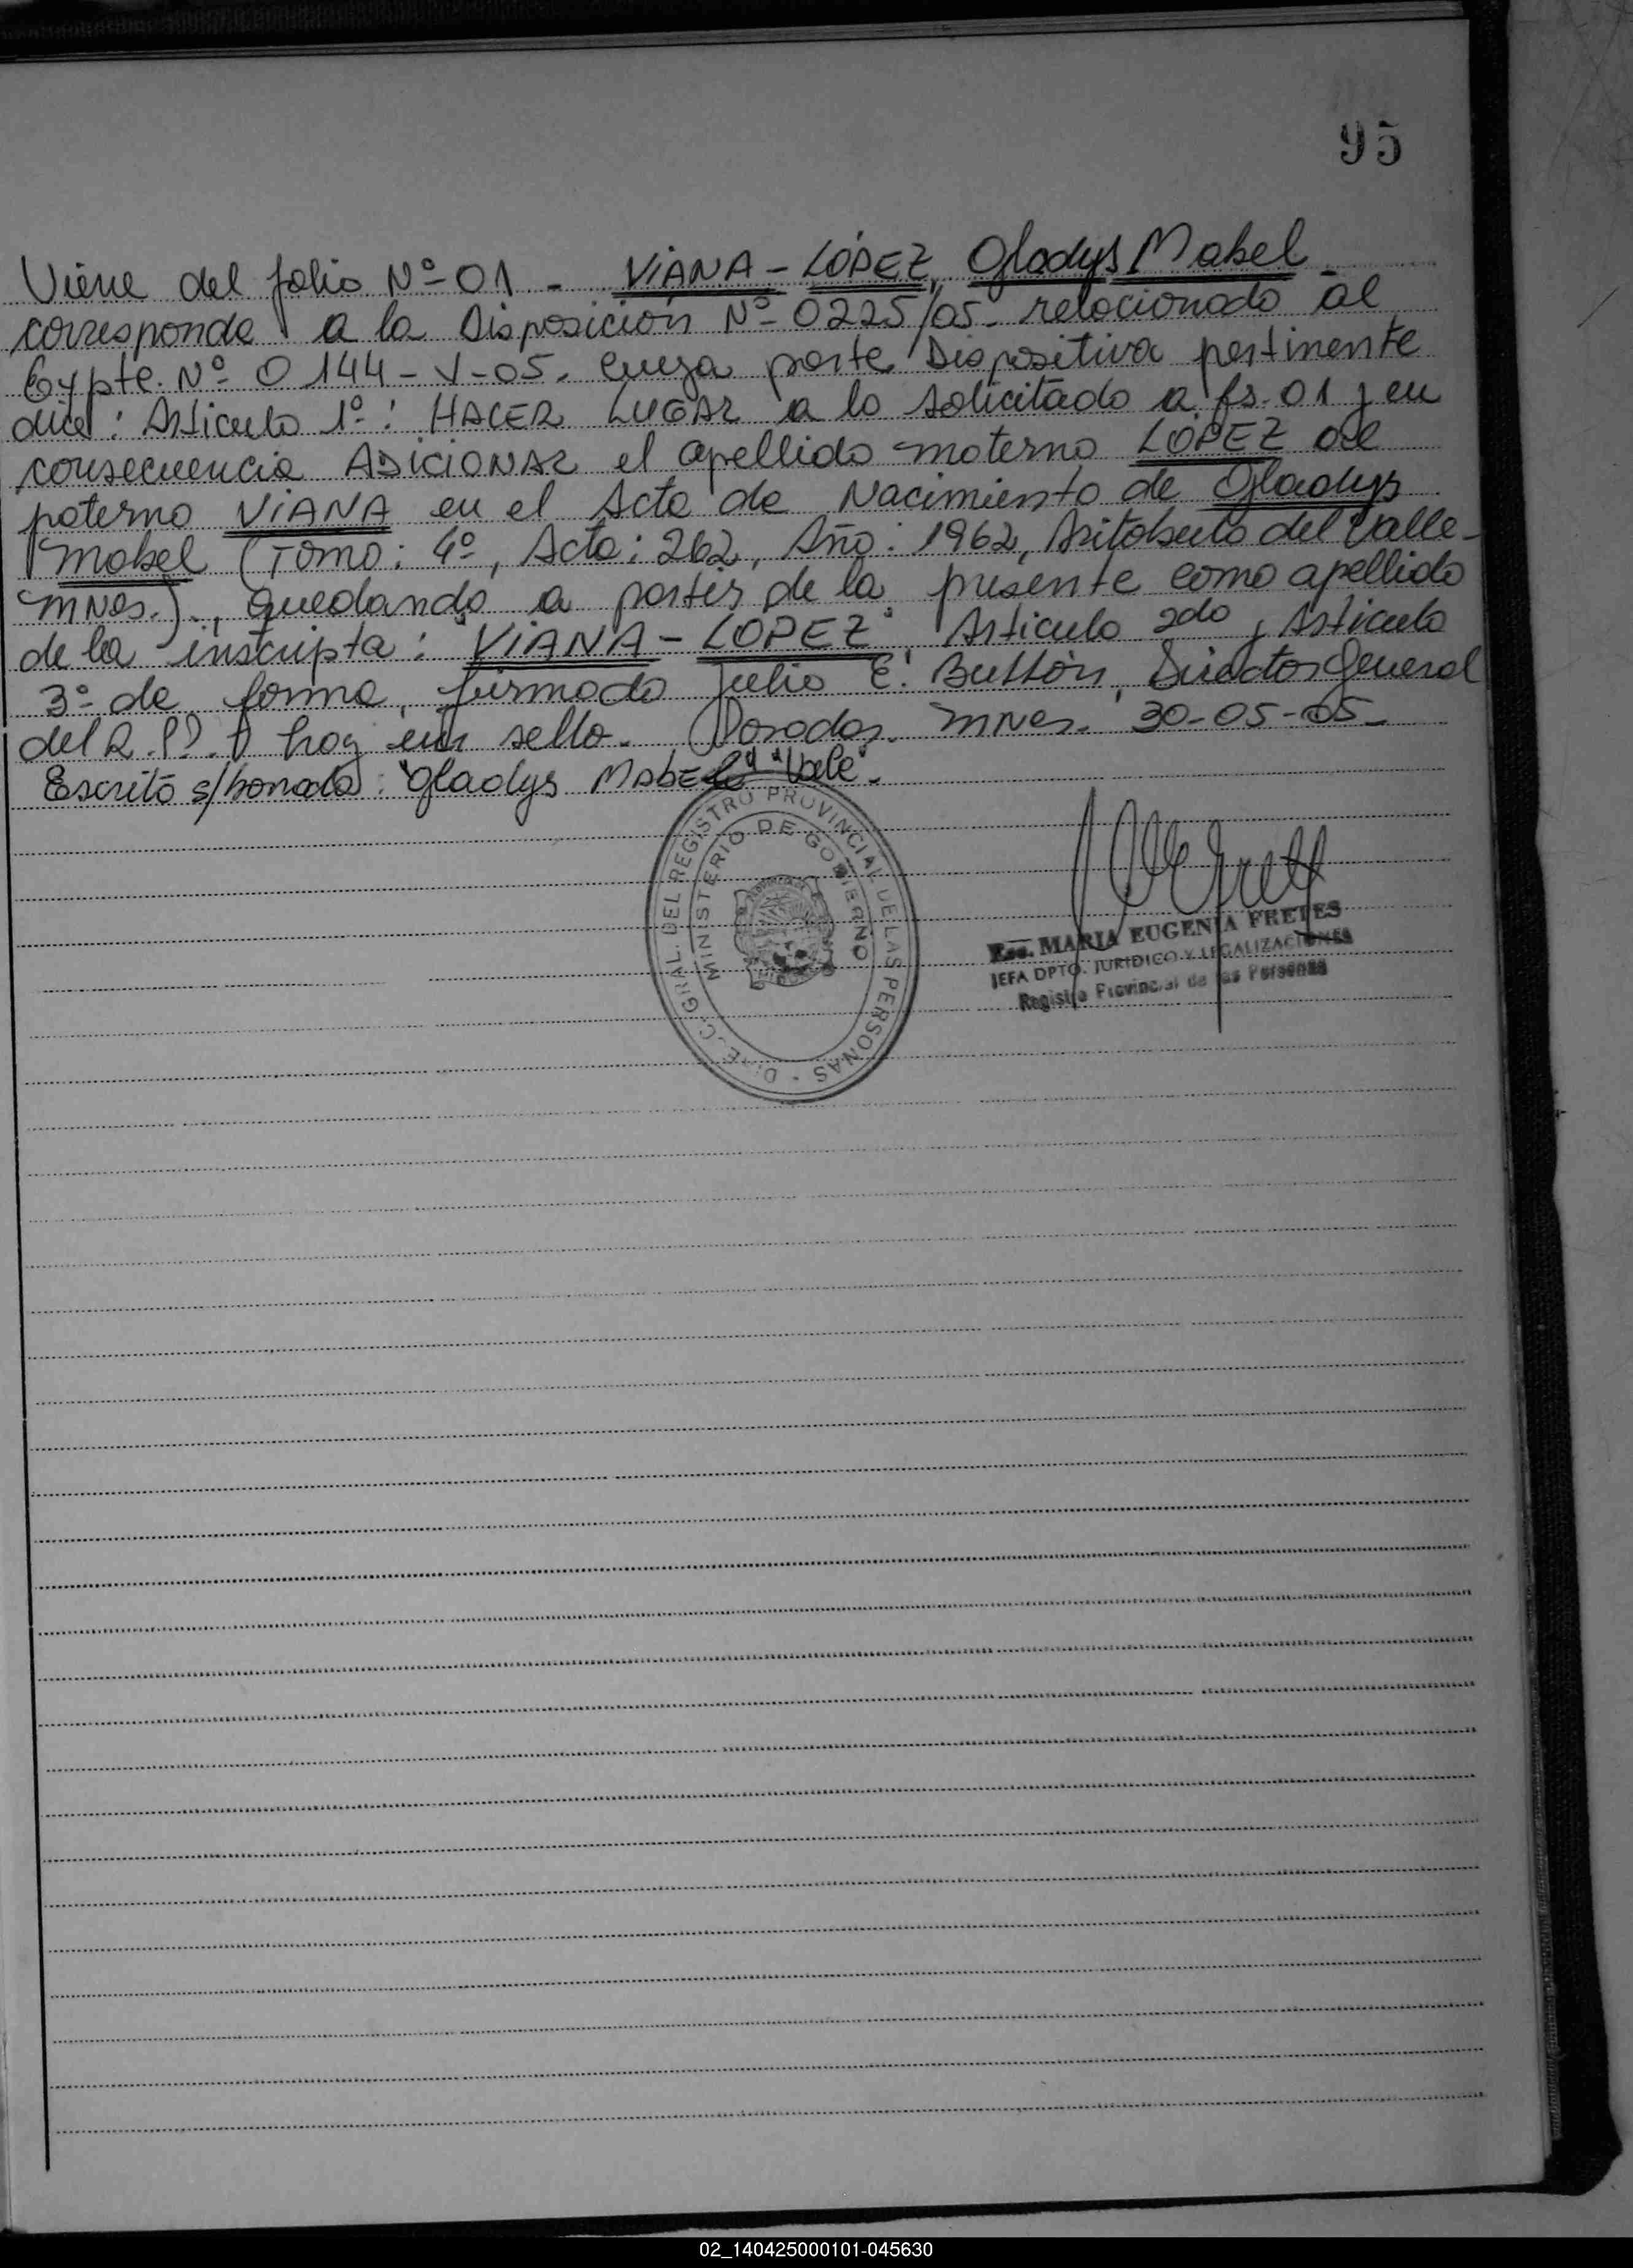 95
Viene del folio Nº 01 - VIANA - LÓPEZ, Gladys Mabel -
corresponde a la Disposición Nº 0225/05 - relacionado al
Expte. Nº 0144 - V - 05. cuya parte Dispositiva pertinente
dice: Artículo 1º: HACER LUGAR a lo solicitado a fs. 01 y en
consecuencia ADICIONAR el apellido materno LÓPEZ al
paterno VIANA en el Acta de Nacimiento de Gladys
Mabel (Tomo: 4º, Acta: 262, Año: 1962, Aristóbulo del Valle -
MNes.)., quedando a partir de la presente como apellido
de la inscripta: "VIANA - LOPEZ". Artículo 2do y Artículo
3º de forma, firmado Julio E. Director General
del R.P.P. hay un sello. Posadas. MNes. 30-05-05-
Escrito s/borrado: "Gladys MABEL" "Vale".
DIREC. GRAL. DEL REGISTRO PROVINCIAL DE LAS PERSONAS -
MINISTERIO DE GOBIERNO
Esc. MARIA EUGENIA FRETES
JEFA DPTO. JURIDICO Y LEGALIZACIONES
Registro Provincial de las Personas
02_140425000101-045630